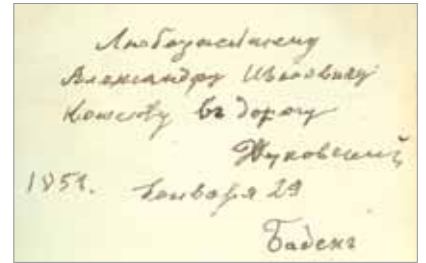 Александру Ивановичу
Кошелеву въ дорогу
Жуковский
1851. Генваря 29
Баденъ